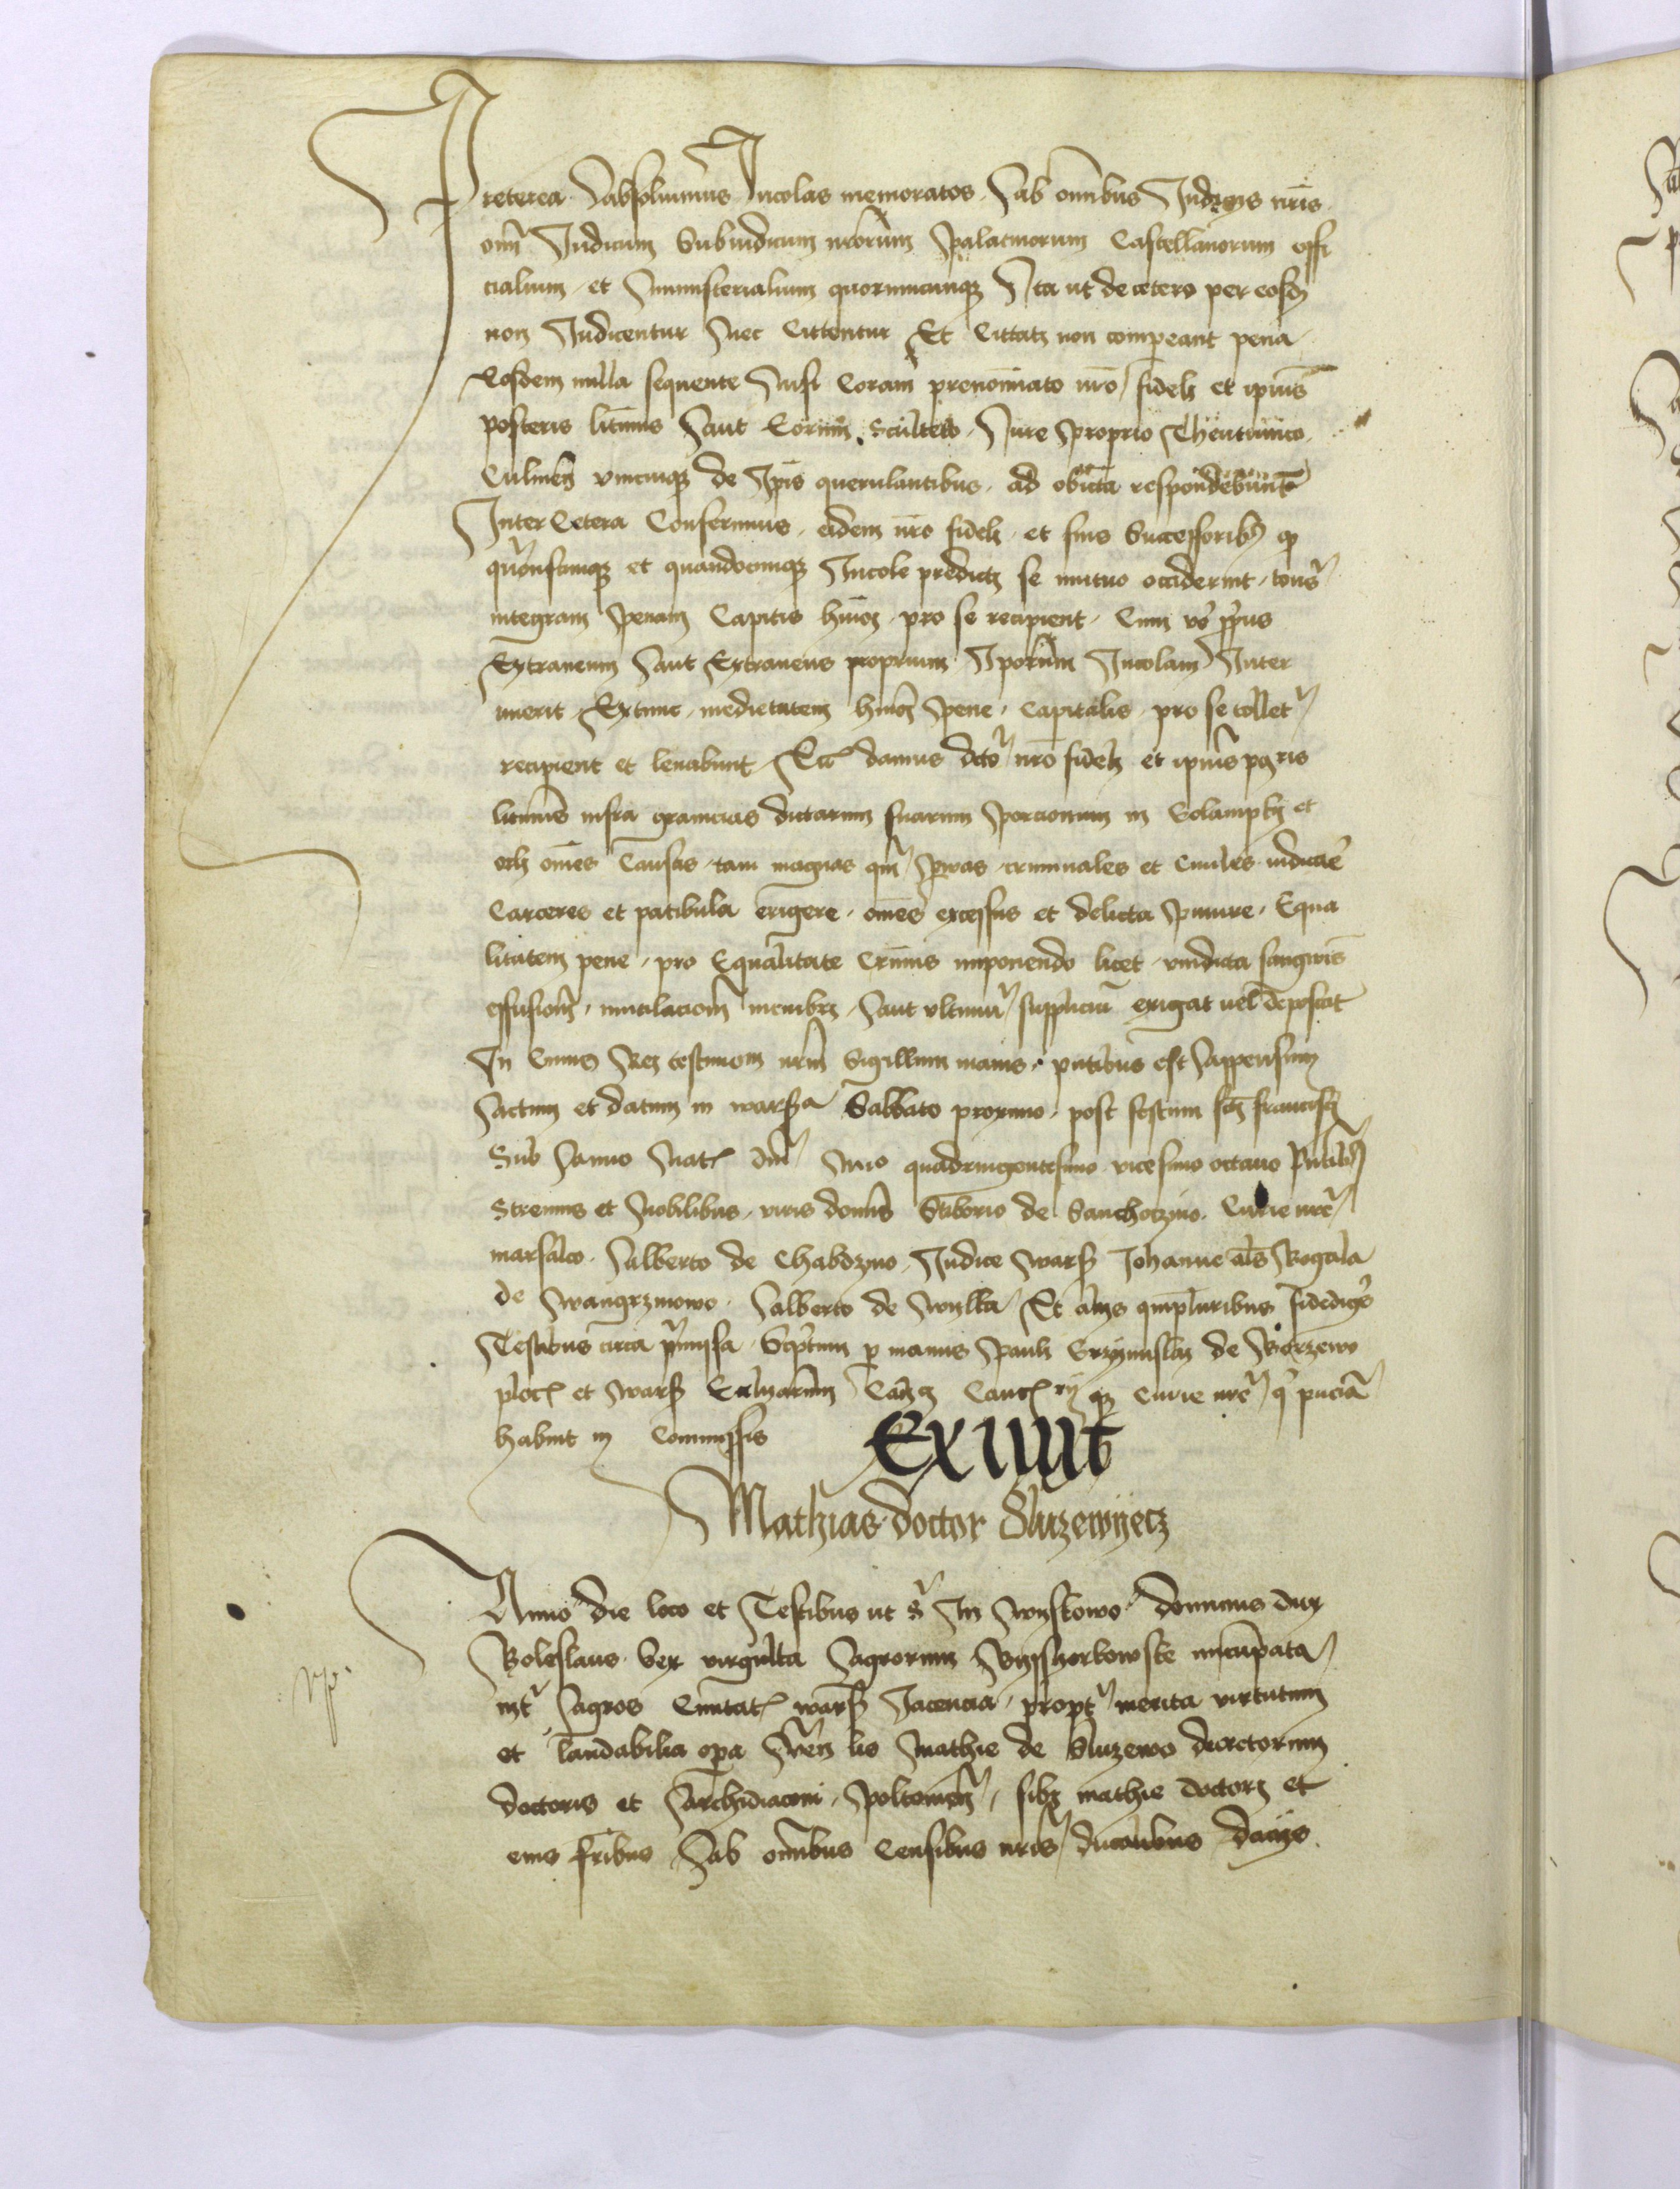 Preterea Absoluimus Incolas memoratos Ab omnibus Iudicijs nris
omi Iudicum Subiudicum nrorum Palatinorum Castellanorum offi
cialium et Ministerialium quorumcunqz Ita ut decetero per eosdem
non Iudicentur Nec Cittentur Et Cittati non compeant pena
Eosdem nulla sequente Nisi Coram prenominato nro fideli et ipius
posteris litimis Aut Eorum Sculteto Iure proprio Theutunico
Culmen unicuiqz de Ipis querulantibus ad obiecta respondebunt
Inter Cetera Conferimus eidem nro fideli et suis Successoribus
et quandocunqz Incole predicti se mutuo occiderint
integram penam Capitis hmoi pro se recipient Cum vero
Extraneum Aut Extraneus proprium Iporum Incolam Inter
imerit Extunc medietatem hmoi pene Capitalis pro se tollet
recipient et leuabunt Et damus dicto nro fideli et ipius
litimis infra granicias dictarum suarum porcionum in Golamphy et
omes Causas tam magnas qm paruas criminales et Ciuiles iudicare
Carceres et patibula erigere omes excessus et delicta punire Equa
litatem pene pro Equalitate Criminis imponendo licet vindicta sangwis
effusionem mutilacionem membri Aut ultimum suppliciu exigat uel deposcat
In Cuius Rei testimoni nrm Sigillum maius pntibus est Appensum
Actum et datum in warsza Sabbato proximo post festum sci francisci
Sub Anno Nat dni Mmo quadringentesimo vicesimo octauo pntibus
Strenuis et Nobilibus viris dominis Stiborio de Sanchoczino Curie nre
marsalco Alberto de Chabdzyno Iudice wars Iohanne als Rogala
de wangrzinowo Alberto de wylka Et alijs qmpluribus fidedigis
Testibus circa pmissa Scptum p manus pauli Grzymislai de Borzewo
ploc et wars Ecliarum Canci Canc qz Curie nre q pncia
habuit in Commissis
Exiuit
Mathias doctor Sluzewyecz
Anno die loco et Testibus ut s In wyskowo dominus dux
Boleslaus Ger virgulta Agrorum nucupata
int Agros Ciuitat wars Iacencia propt merita virtutum
et laudabilia opa de Sluzewo decretorum
doctoris et Archidiaconi poltouien sibi mathie doctori et
eius fribus Ab omibus Censibus nris ducalibus dacijs